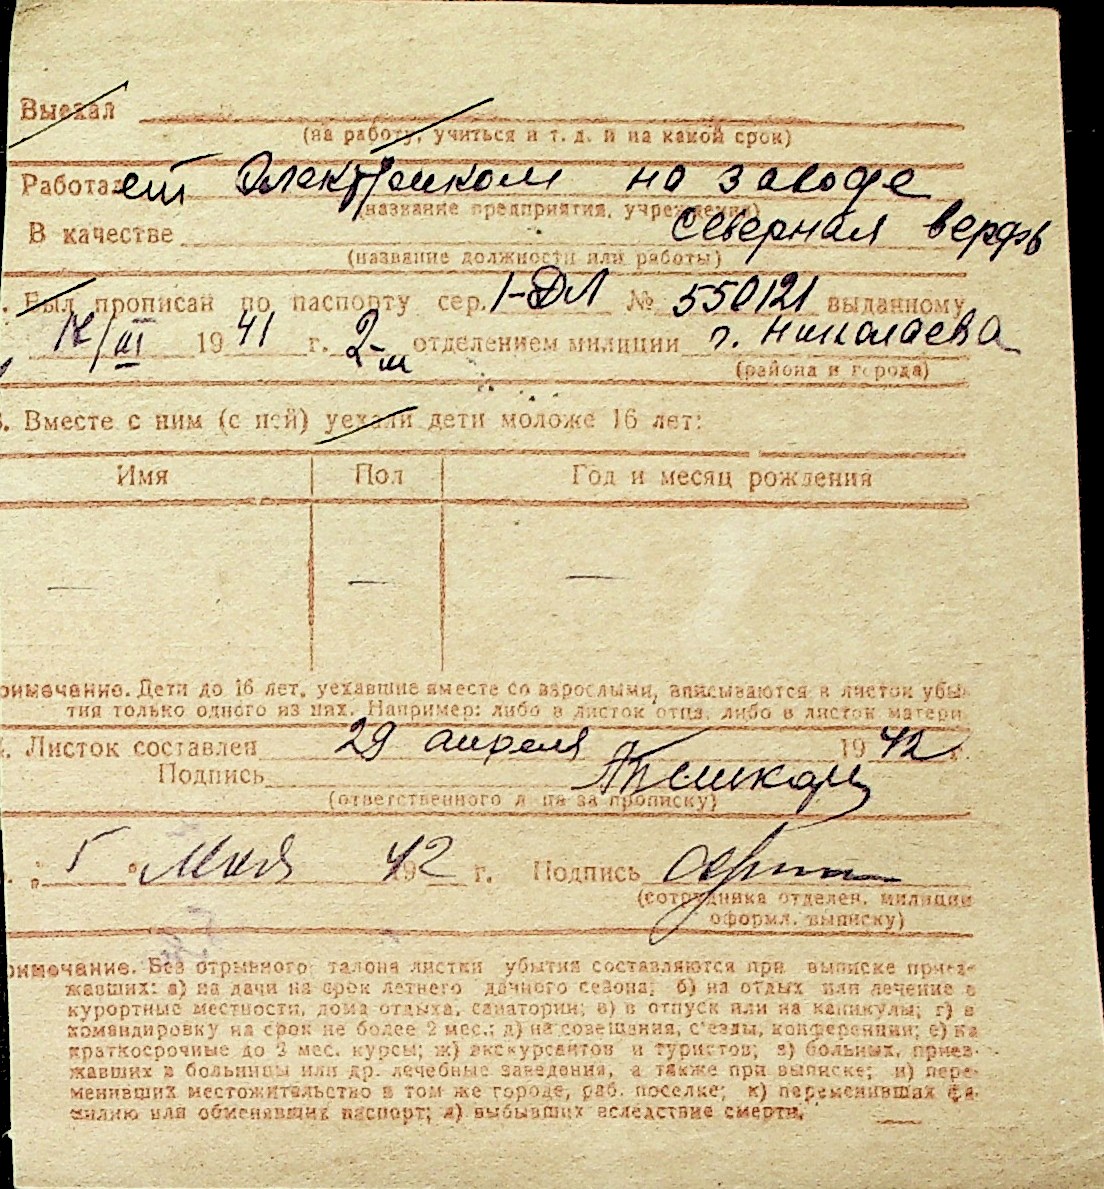 Выехал
(на работу, учиться и т. д. и на какой срок)
Работает Электриком на заводе
(название предприятия, учреждения)
В качестве Северная верфь
(название должности или работы)
Был прописан по паспорту сер. I-ДЛ № 550121 выданному
IV/III 1941 г. 2-м отделением милиции г. Николаева
(района и города)
3. Вместе с ним (с ней) уехали дети моложе 16 лет:
Имя Пол Год и месяц рождения
— — —
римечание. Дети до 16 лет, уехавшие вместе со взрослыми, вписываются в листок убы-
тия только одного из них. Например: либо в листок отца, либо в листок матери
4. Листок составлен 29 апреля 1942 г.
Подпись
(ответственного лица за прописку)
5 Мая 1942 г. Подпись
(сотрудника отделен. милиции
оформл. выписку)
римечание. Без отрывного талона листки убытия составляются при выписке приез-
жавших: а) на дачи на срок летнего дачного сезона; б) на отдых или лечение в
курортные местности, дома отдыха, санатории; в) в отпуск или на каникулы; г) в
командировку на срок не более 2 мес.; д) на совещания, с'езды, конференции; е) на
краткосрочные до 3 мес. курсы; ж) экскурсантов и туристов; з) больных, приез-
жавших в больницы или др. лечебные заведения, а также при выписке; и) пере-
менивших местожительство в том же городе, раб. поселке; к) переменивших фа-
милию или обменявших паспорт; л) выбывших вследствие смерти.